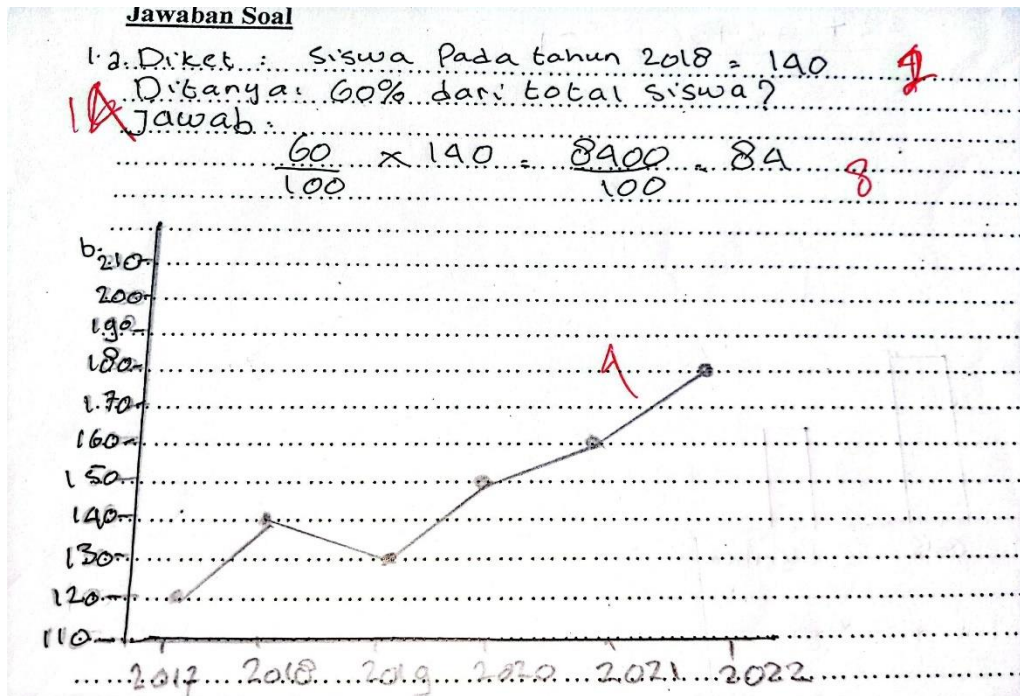 Jawaban Soal
1.a. Diket : Siswa Pada tahun 2018 = 140
Ditanya: 60% dari total siswa?
Jawab:
60/100 x 140 = 8400/100 = 84
8
b.
210
200
190
180
170
160
150
140
130
120
110
2017 2018 2019 2020 2021 2022